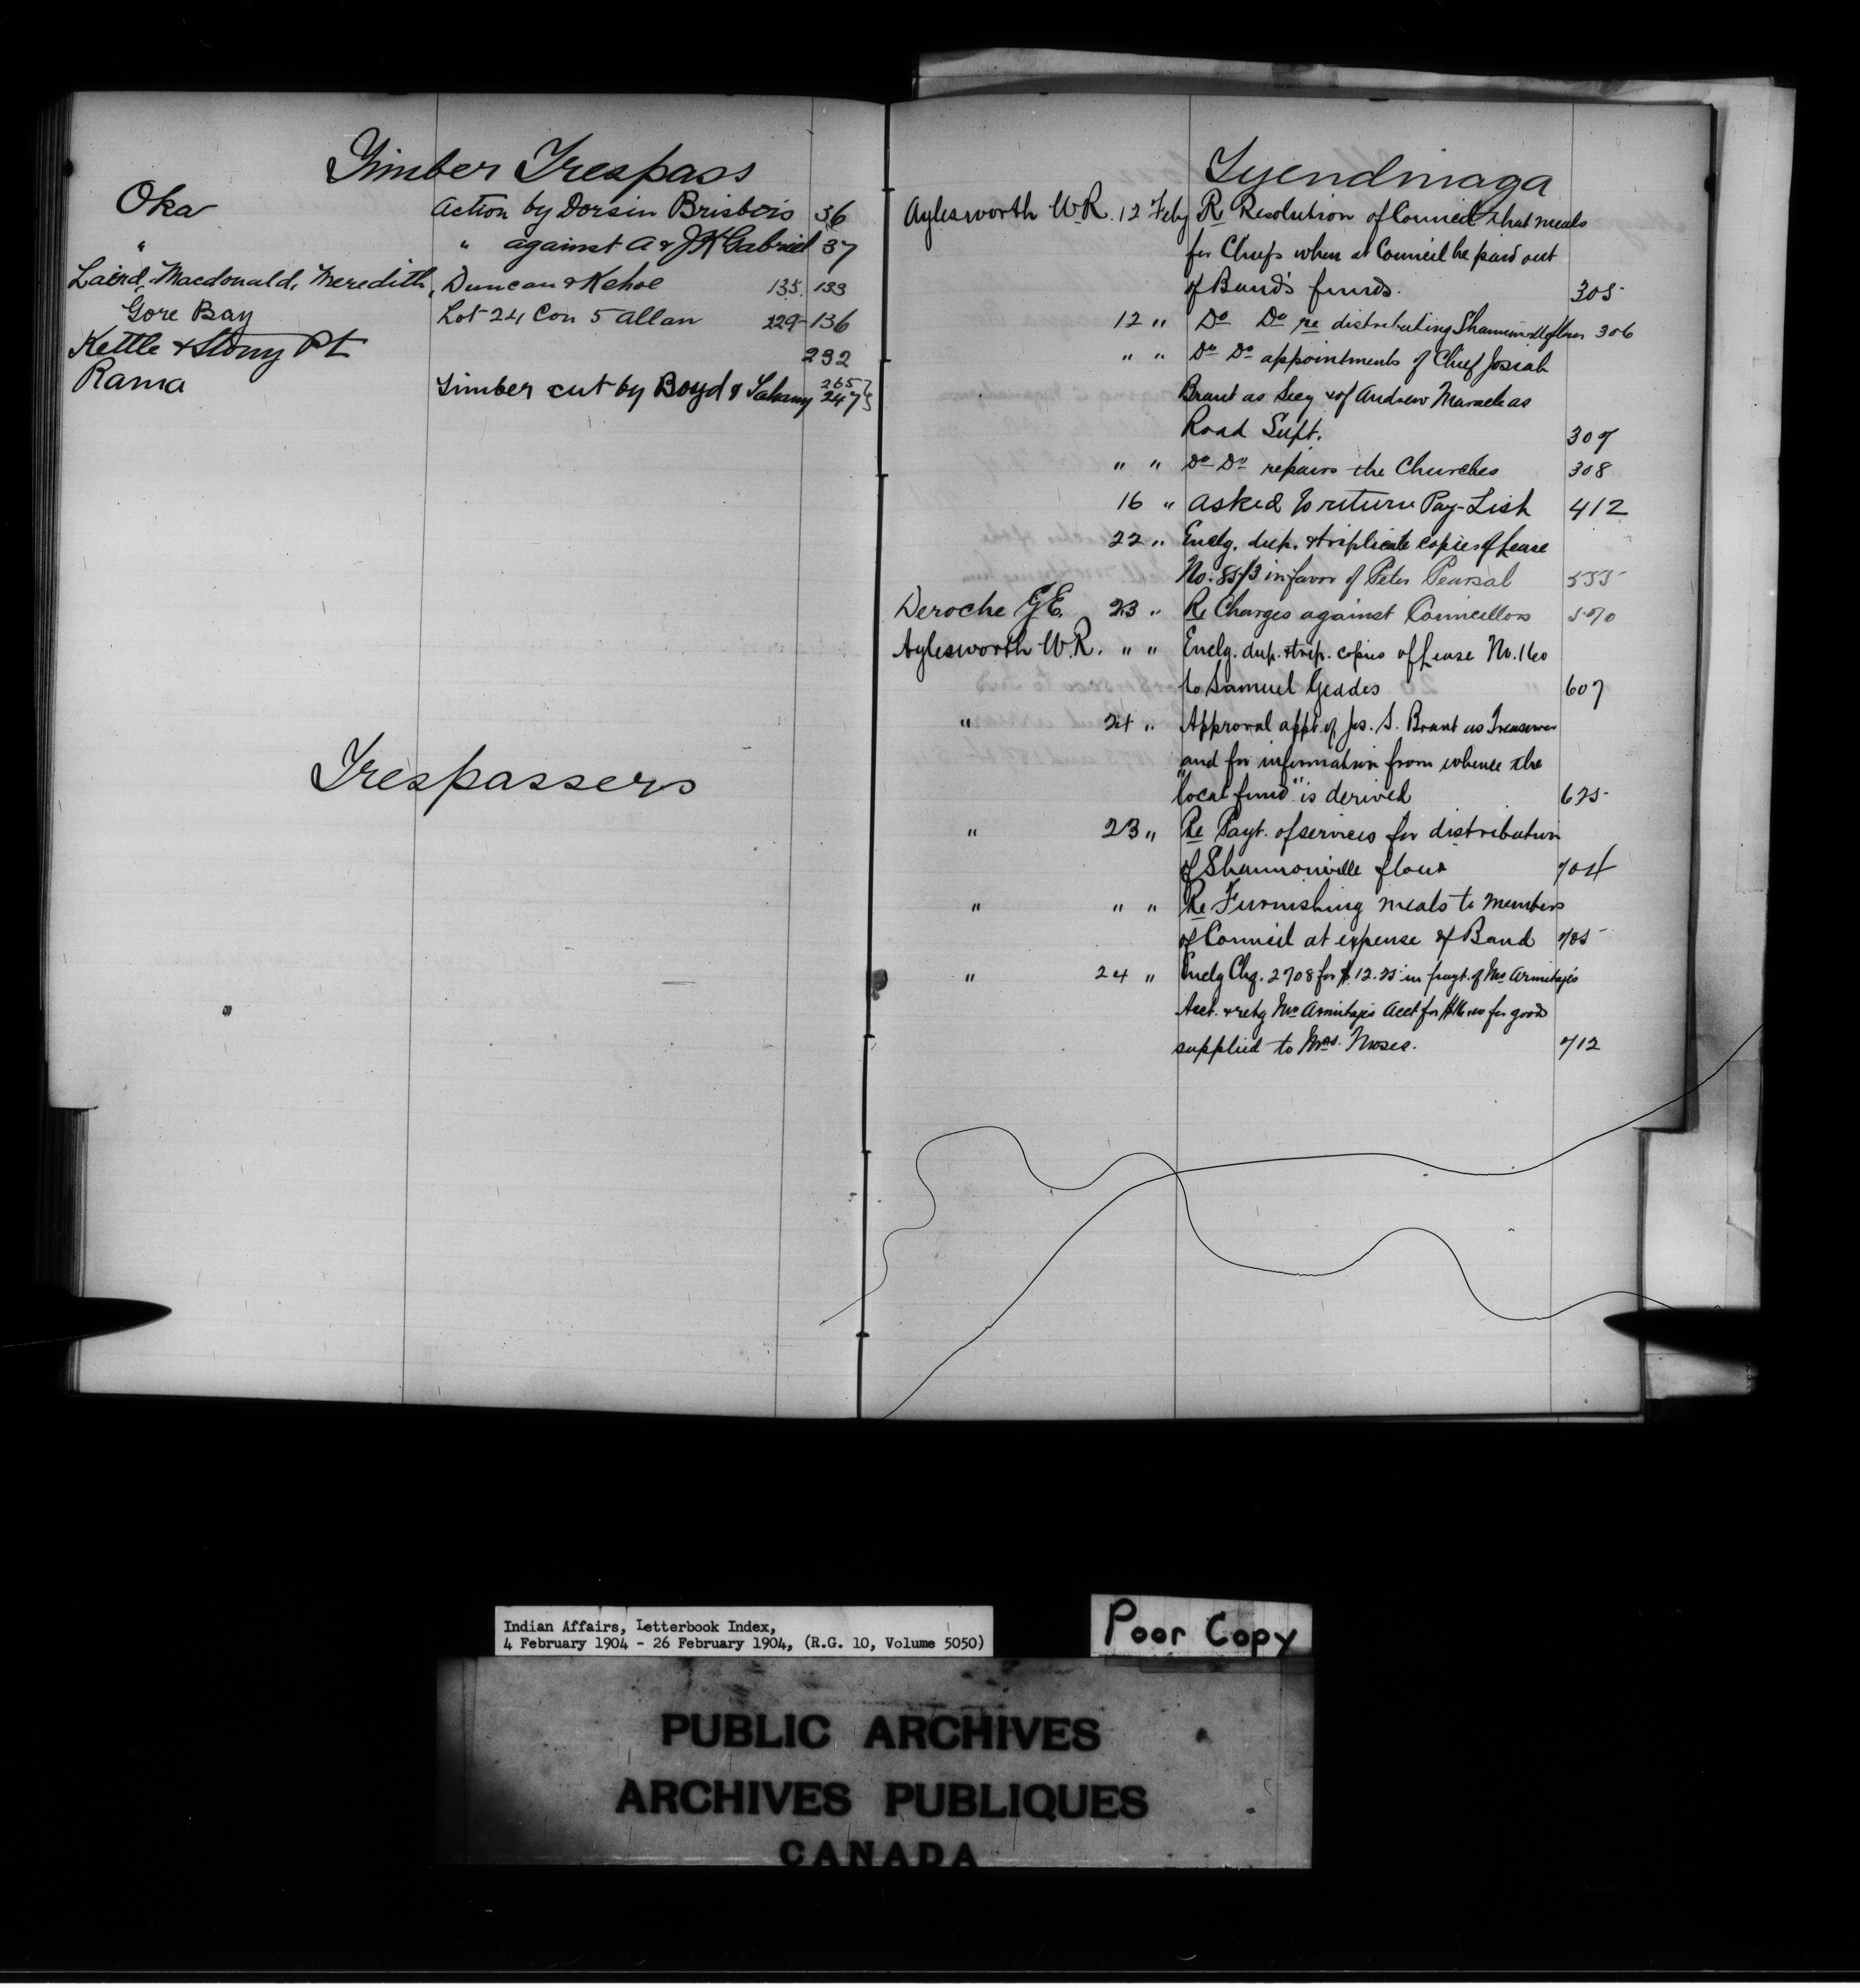 Timber Trespass
Oka Action by Dorsin Brisbois 36
" " against A & J K Gabriel 37
Laird, Macdonald, Meredith, Duncan & Kehoe 135, 133
Gore Bay Lot 24 Con 5 Allan 229-136
Kettle & Stony Pt 232
Rama Timber cut by Boyd & 265 247
Trespassers
Tyendinaga
Aylesworth W.R. 12 Feby Re Resolution of Council that meals
for Chiefs when at Council be paid out
of Band's funds. 305
12 " Do Do re distributing flour 306
" " Do Do appointments of Chief Josiah
Brant as Secy & of Andrew Maracle as
Road Supt. 307
" " Do Do repairs the Churches 308
16 " Asked to return Pay-List 412
22 " Enclg. dup. & triplicate copies of Lease
No. in favor of Peter Pearsal 555
Deroche G.E. 23 " Re Charges against Councillors 570
Aylesworth W.R. " " Enclg. dup. & trip. copies of Lease No. 160
to Samuel Geddes 607
" 24 " Approval appt. of Jos. S. Brant as Treasurer
and for information from whence the
"local fund" is derived 625
" 23 " Re Payt. of services for distribution
of Shannonville flour 704
" " " Re Furnishing meals to Members
of Council at expense of Band 705
" 24 " Enclg Chq. 2708 for $12.25 in payt. of Mr Armitage's
Acct. & retg Mr Armitage's Acct for for goods
supplied to Mrs. Moses. 712
Indian Affairs, Letterbook Index,
4 February 1904 - 26 February 1904, (R.G. 10, Volume 5050)
Poor Copy
PUBLIC ARCHIVES
ARCHIVES PUBLIQUES
CANADA